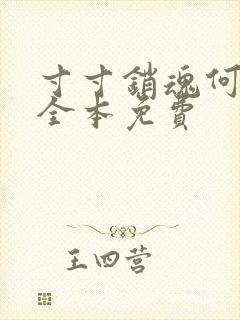 寸寸銷魂何
全本免費
王四营